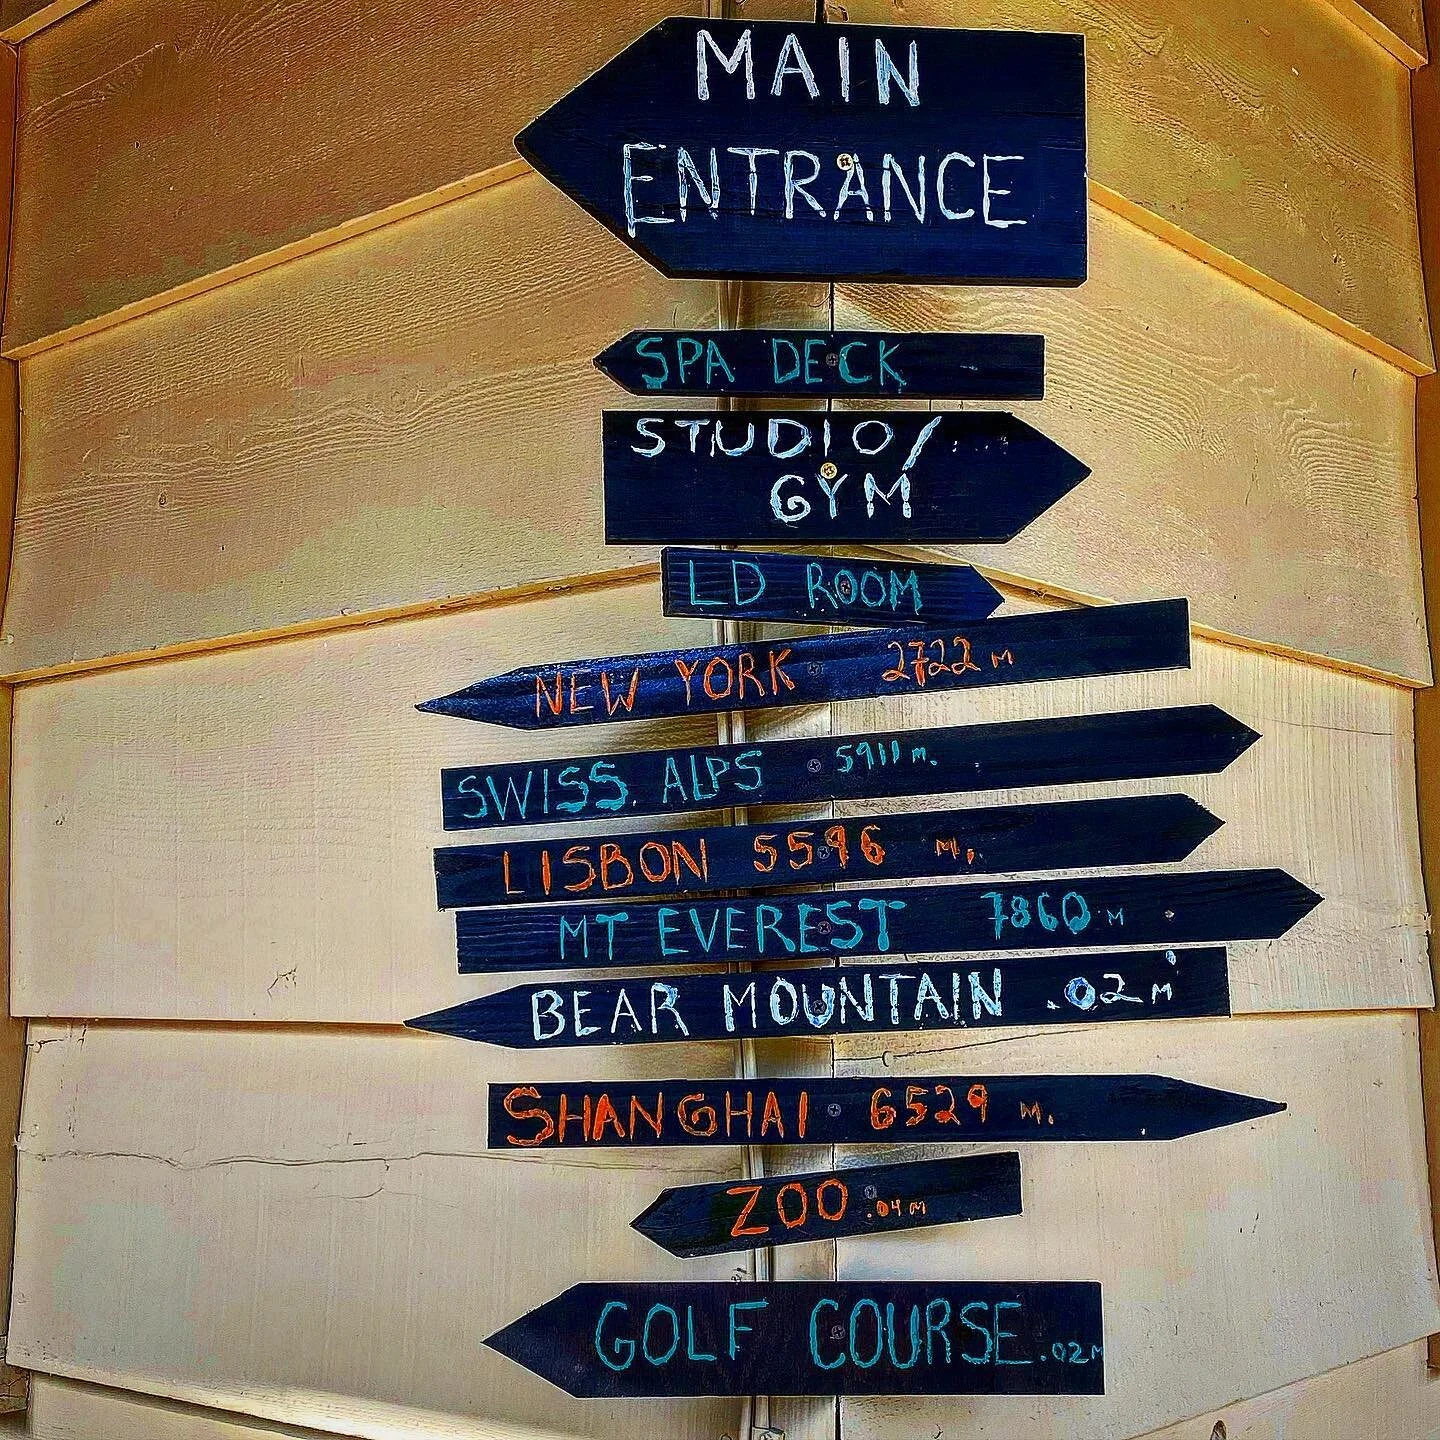 MAIN
ENTRANCE
SPA DECK
STUDIO/
GYM
LD ROOM
NEW YORK 2722 M
SWISS ALPS 5911 M.
LISBON 5596 M.
MT EVEREST 7860 M
BEAR MOUNTAIN .02 M
SHANGHAI 6529 M.
ZOO .04 M
GOLF COURSE .02 M